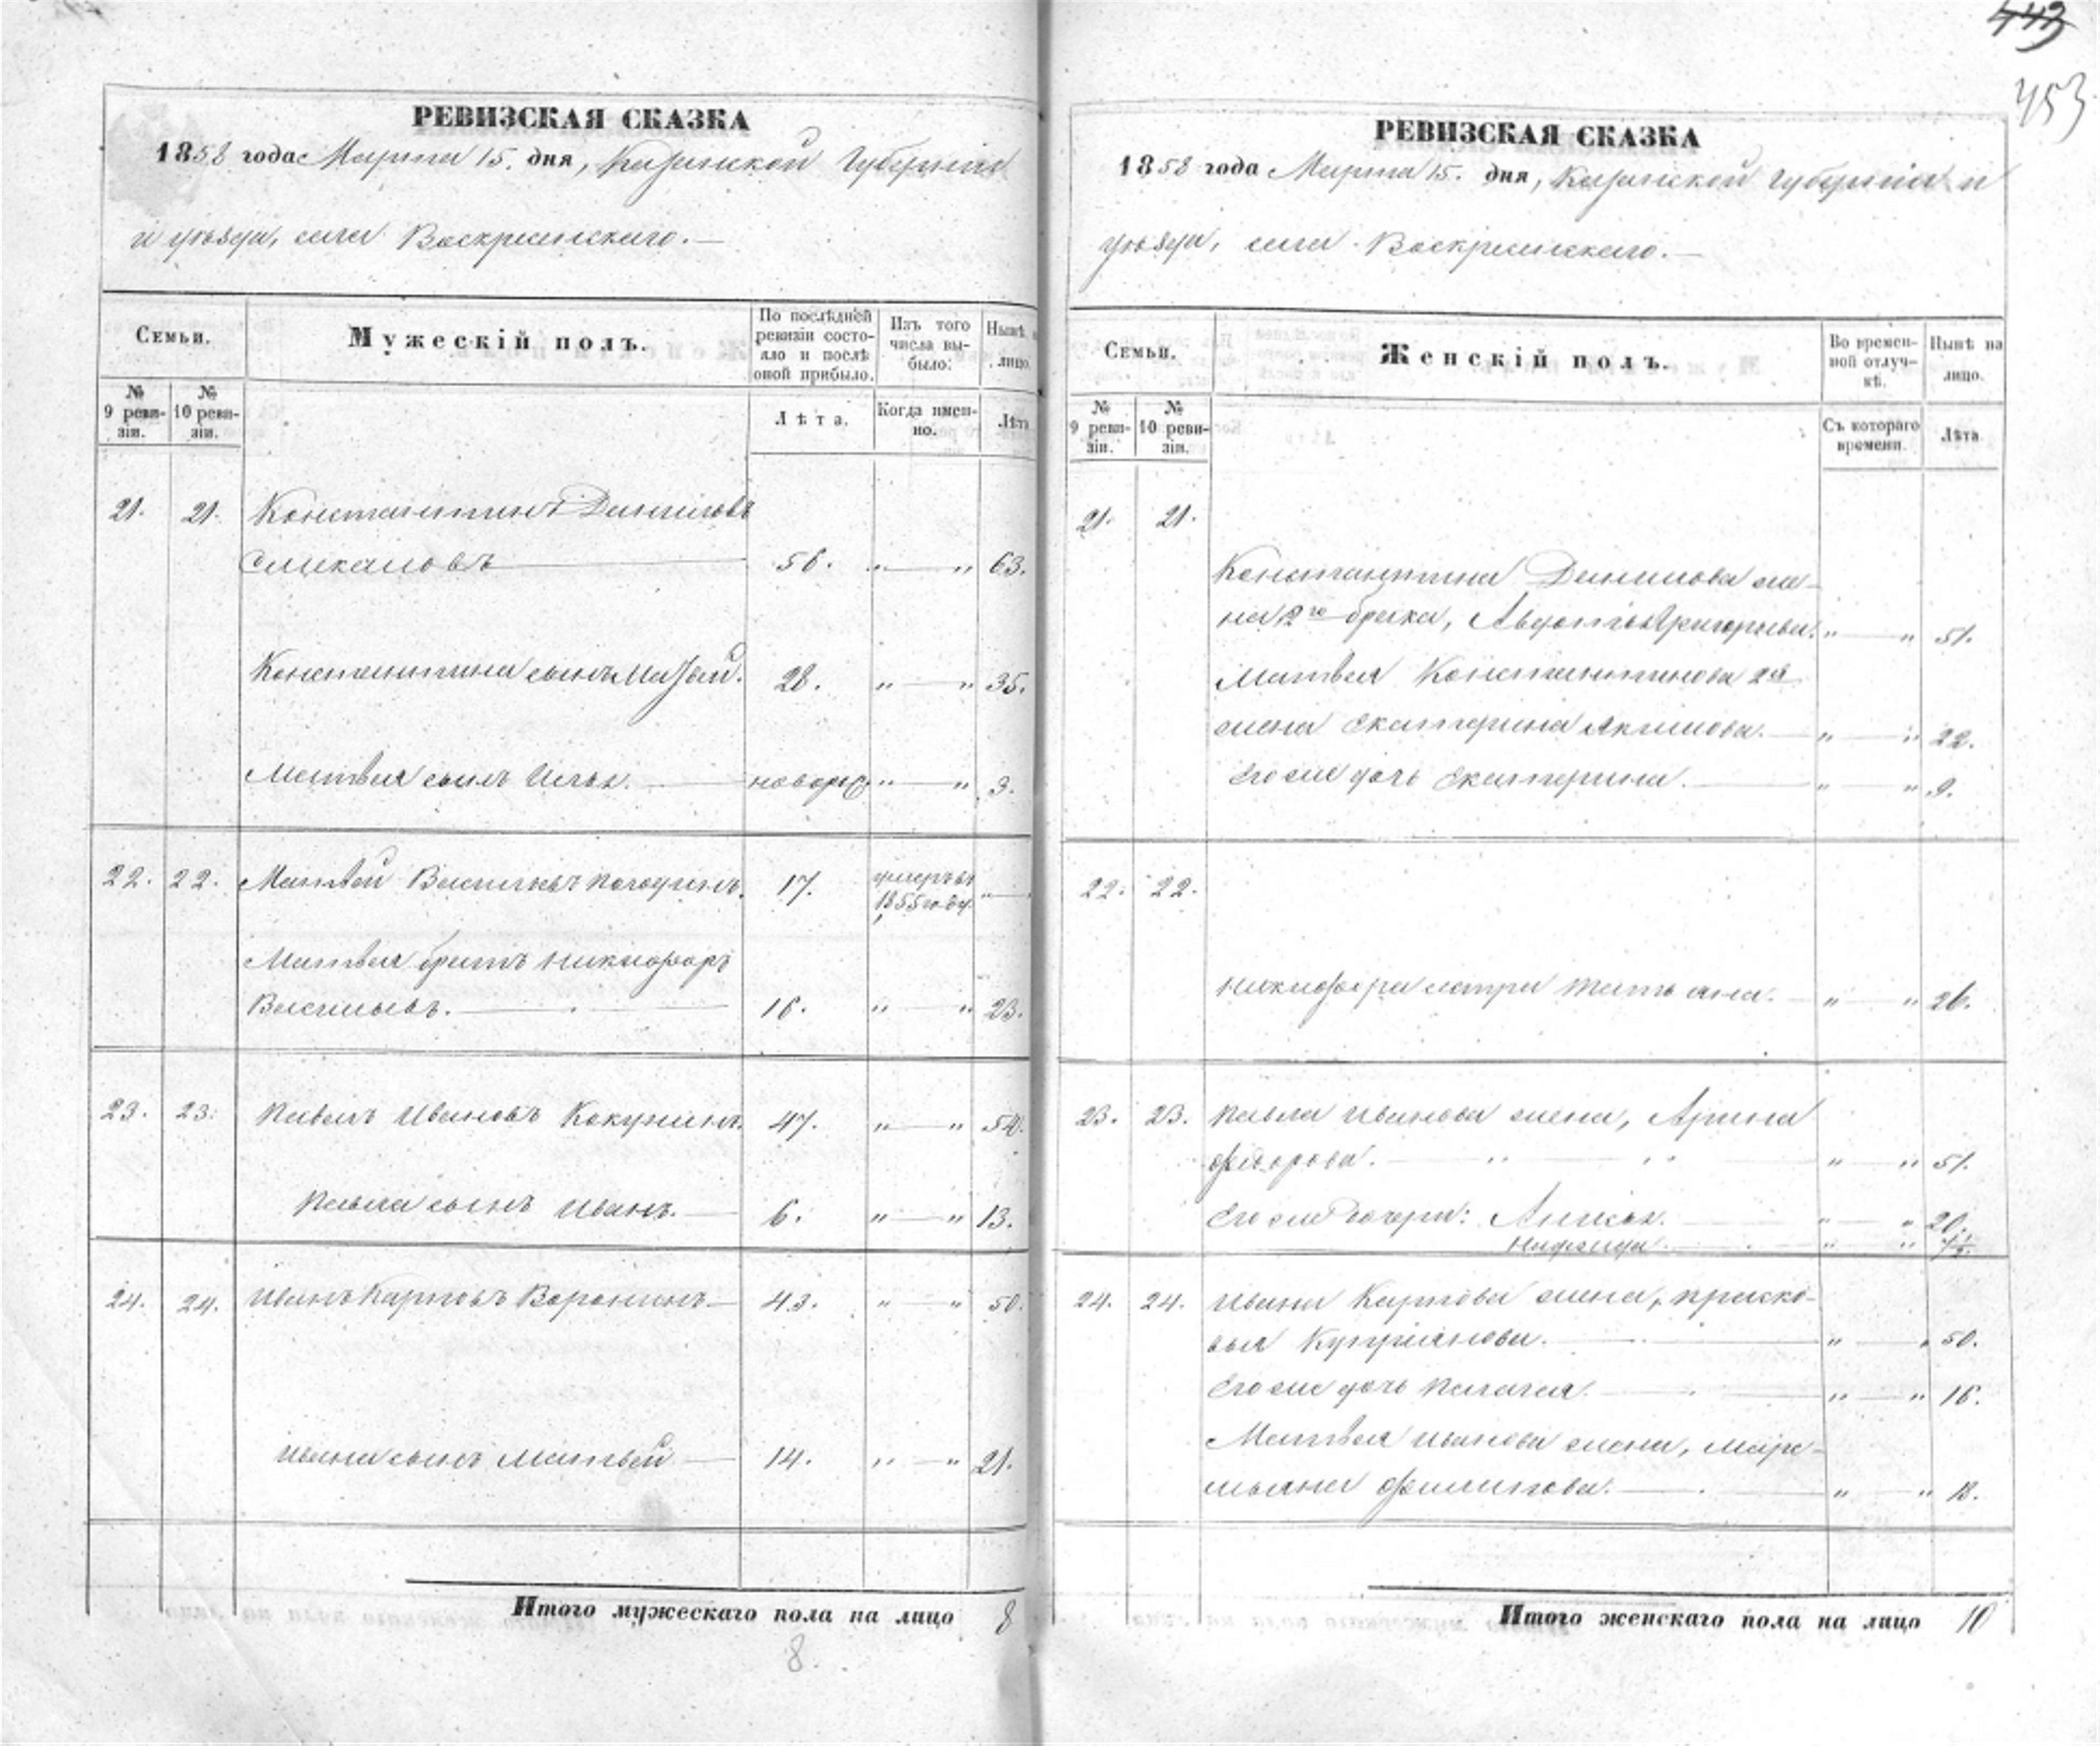 443
453
РЕВИЗСКАЯ СКАЗКА
1858 года Марта 15. дня, Казанской Губернiи
и уѣзда, села Воскресенскаго.—
Семьи.
Мужескій полъ.
По послѣдней ревизіи состояло и послѣ оной прибыло.
Изъ того числа выбыло:
Нынѣ на лицо.
№ 9 ревизіи.
№ 10 ревизіи.
Лѣта.
Когда именно.
Лѣта
21. 21. Константинъ Даниловъ
56. „ — „ 63.
Константина сынъ Матвей. 28. „ — „ 35.
Матвея сынъ Илья. — новорож „ — „ 3.
22. 22. Матвей Васильевъ 17. умеръ въ 1855 году. „ —
Матвея братъ Никифоръ
Васильевъ. — 16. „ — „ 23.
23. 23. Павелъ Ивановъ Кокунинъ. 47. „ — „ 54.
Павла сынъ Иванъ. — 6. „ — „ 13.
24. 24. Иванъ Карповъ Воронинъ. — 43. „ — „ 50.
Ивана сынъ Матвей — 14. „ — „ 21.
Итого мужескаго пола на лицо 8
8.
РЕВИЗСКАЯ СКАЗКА
1858 года Марта 15. дня, Казанской Губернiи и
уѣзда, села Воскресенскаго.—
Семьи.
Женскій полъ.
Во временной отлучкѣ.
Нынѣ на лицо.
№ 9 ревизіи.
№ 10 ревизіи.
Съ котораго времени.
Лѣта
21. 21.
Константина Данилова же-
на 2го брака, Авдотья Григорьева. „ — „ 51.
Матвея Константинова 2я
жена Екатерина Акимова. — „ — „ 22.
Его же дочь Екатерина. — „ „ 9.
22. 22.
Никифора сестра Татьяна. — „ — „ 26.
23. 23. Павла Иванова жена, Арина
Федорова. — „ — „ 51.
Его же дочери: Анисья. — „ — „ 20.
„ — „
24. 24. Ивана Карпова жена, Праско-
вья Куприянова. — „ — „ 50.
Его же дочь Пелагея. — „ — „ 16.
Матвея Иванова жена, Маре-
мьяна Филипова. — „ — „
Итого женскаго пола на лицо 10